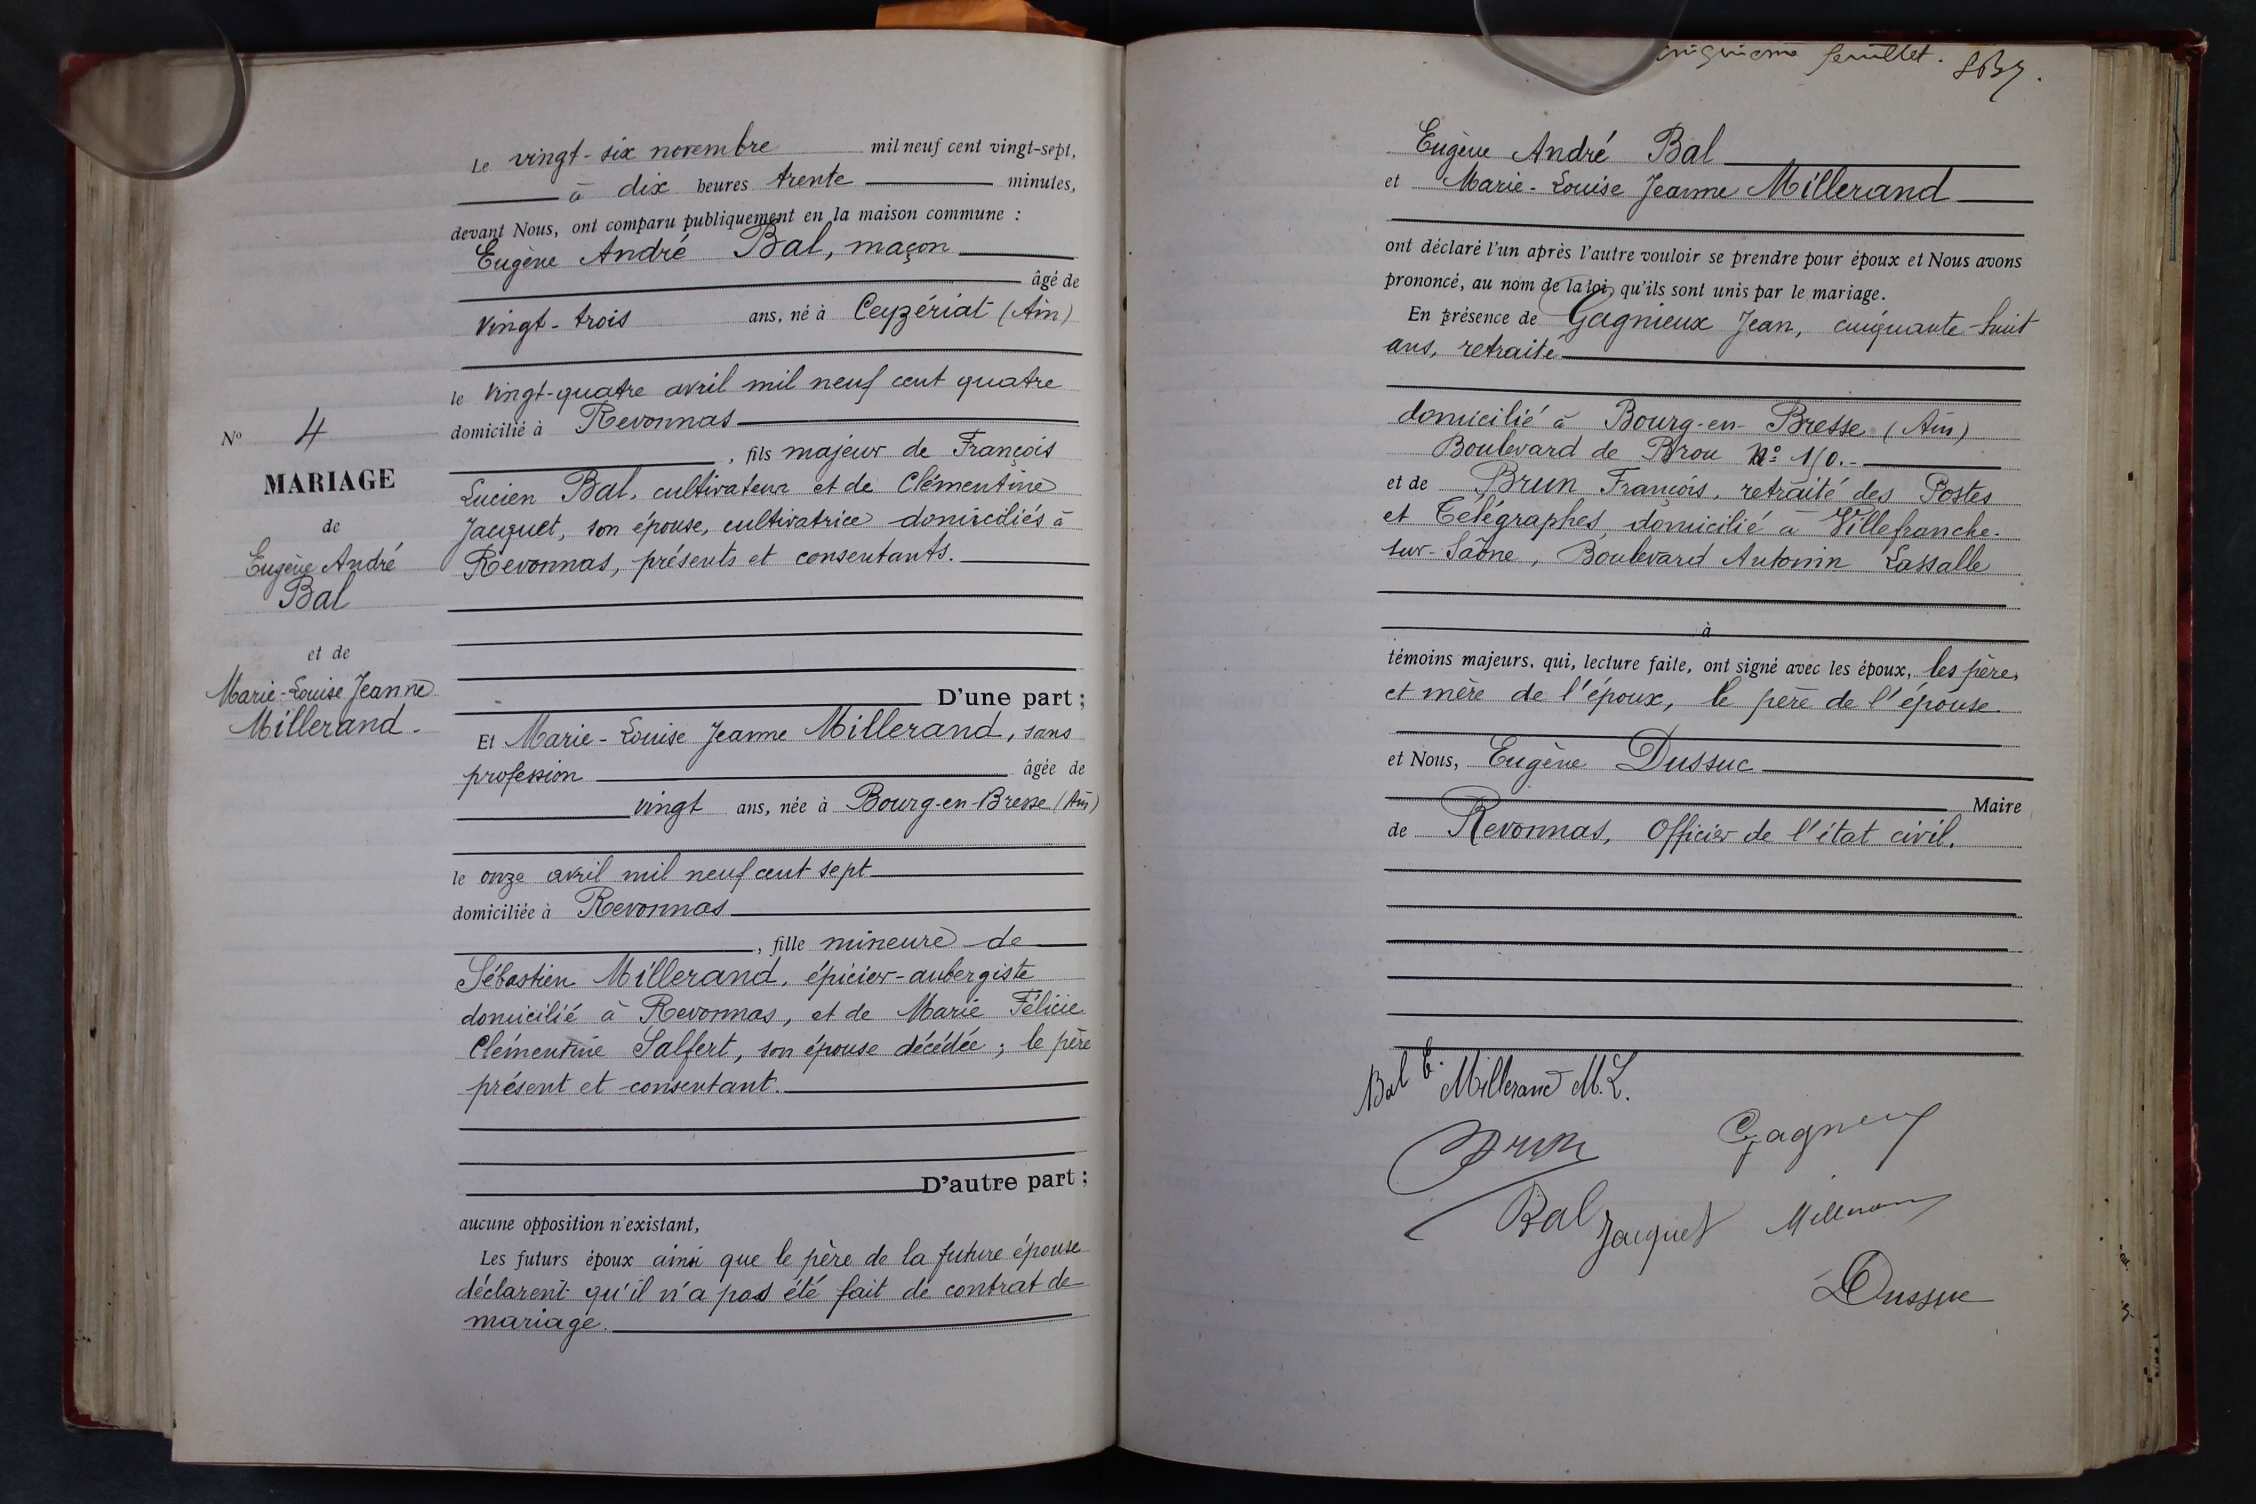 Le vingt-six novembre mil neuf cent vingt-sept,
à dix heures trente minutes,
devant Nous, ont comparu publiquement en la maison commune :
Eugène André Bal, maçon
âgé de
vingt-trois ans, né à Ceyzériat (Ain)
le vingt-quatre avril mil neuf cent quatre
domicilié à Revonnas
, fils majeur de François
Lucien Bal, cultivateur et de Clémentine
Jacquet, son épouse, cultivatrice domiciliés à
Revonnas, présents et consentants.
D'une part ;
Et Marie-Louise Jeanne Millerand, sans
profession âgée de
vingt ans, née à Bourg-en-Bresse (Ain)
le onze avril mil neuf cent sept
domiciliée à Revonnas
, fille mineure de
Sébastien Millerand, épicier-aubergiste
domicilié à Revonnas, et de Marie Félicie
Clémentine Salfert, son épouse décédée ; le père
présent et consentant.
D'autre part ;
aucune opposition n'existant,
Les futurs époux ainsi que le père de la future épouse
déclarent qu'il n'a pas été fait de contrat de
mariage.
No 4
MARIAGE
de
Eugène André
Bal
et de
Marie-Louise Jeanne
Millerand.
feuillet.
Eugène André Bal
et Marie-Louise Jeanne Millerand
ont déclaré l'un après l'autre vouloir se prendre pour époux et Nous avons
prononcé, au nom de la loi, qu'ils sont unis par le mariage.
En présence de Gagnieux Jean, cinquante-huit
ans, retraité
domicilié à Bourg-en-Bresse (Ain)
Boulevard de Brou No 110.-
et de Brun François, retraité des Postes
et Télégraphes, domicilié à Villefranche-
sur-Saône, Boulevard Antonin Lassalle
à
témoins majeurs, qui, lecture faite, ont signé avec les époux, les père
et mère de l'époux, le père de l'épouse
et Nous, Eugène Dussuc
Maire
de Revonnas, Officier de l'état civil.
Bal E. Millerand M.L.
Brun Gagnieux
Bal Jacquet Millerand
Dussuc